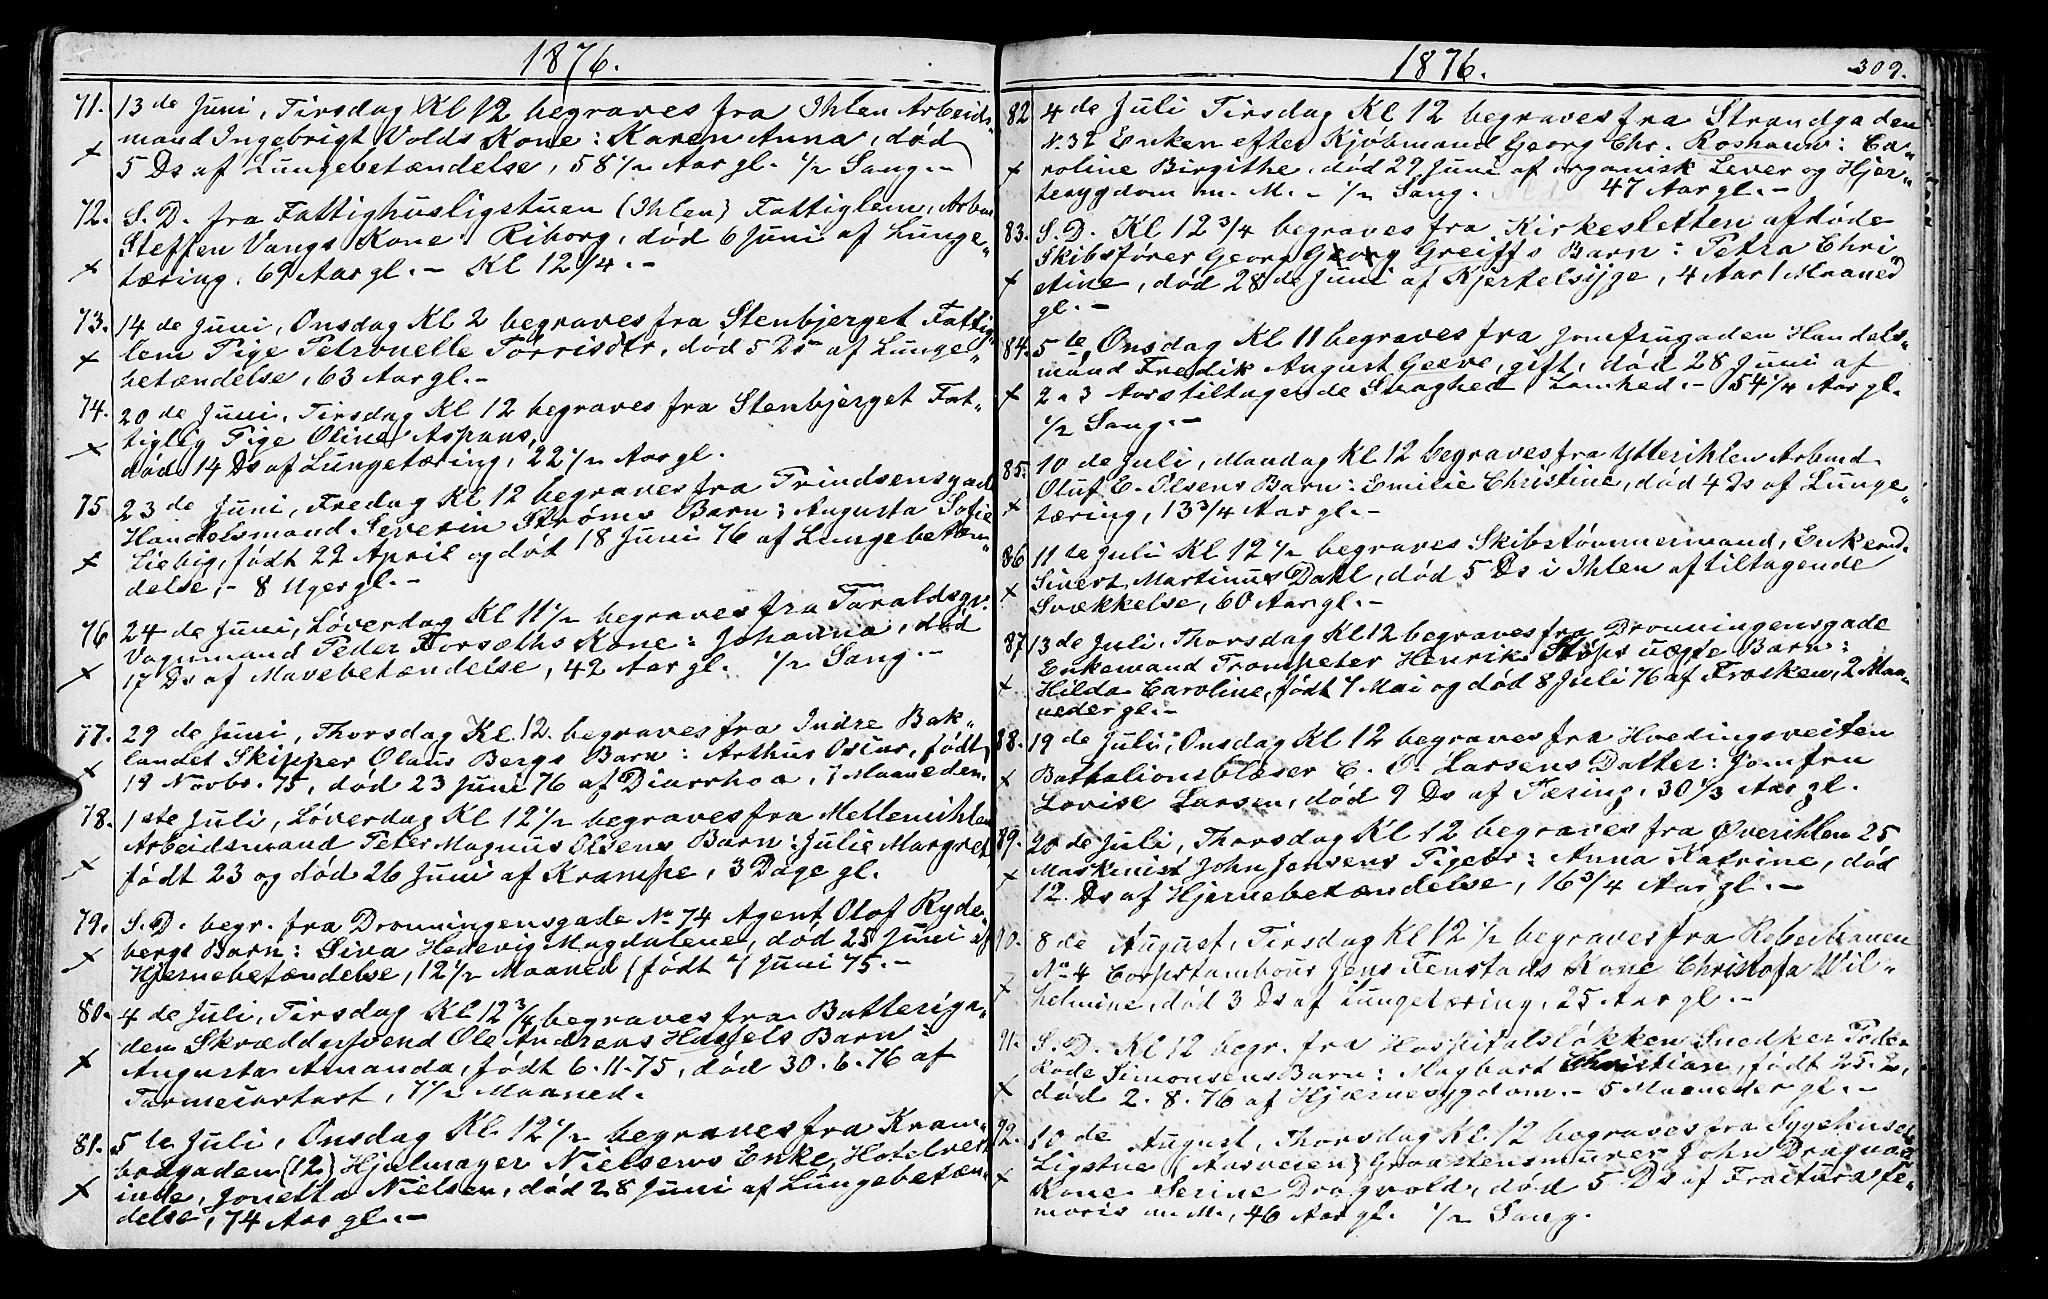 1876.
71. 13de Juni, Tirsdag Kl 12 begraves fra Ihlen Arbeids-
mand Ingebrigt Volds Kone: Karen Anna, død
x 5 Ds af Lungebetændelse, 58 1/2 Aar gl. 1/2 Sang.-
72. S.D. fra Fattighusligstuen (Ihlen) Fattiglem, Arbm
Steffen Vangs Kone Riborg, død 6 Juni af Lunge-
x tæring, 69 Aar gl.- Kl 12 1/4.-
73. 14 de Juni, Onsdag Kl 2 begraves fra Stenbjerget Fattig-
x lem Pige Petronelle Torrisdtr, død 5 Ds af Lunge-
betændelse, 63 Aar gl.-
74. 20 de Juni, Tirsdag Kl 12 begraves fra Stenbjerget Fat-
x tiglig Pige Oline Aspaas,
død 14 Ds af Lungetæring, 22 1/2 Aar gl.
75 23 de Juni, Fredag Kl 12 begraves fra Prindsensgad
Handelsmand Severin Strøms Barn: Augusta Sofie
x Liebig, født 22 April og død 18 Juni 76 af Lungebetæn-
delse,- 8 Uger gl.-
76 24 de Juni, Løverdag Kl 11 1/2 begraves fra Taraldsgv.
Vognmand Peder Forsæths Kone: Johanna, død
x 17 Ds af Mavebetændelse, 42 Aar gl. 1/2 Sang.-
77. 29 de Juni, Thorsdag Kl. 12. begraves fra Indre Bak-
landet Skipper Olaus Bergs Barn: Arthur Oscar, født
x 19 Novbr. 75, død 23 Juni 76 af Diarrhoa, 7 Maaneder.
78. 1ste Juli, Løverdag Kl 12 1/2 begraves fra Mellemihlen
Arbeidsmand Peter Magnus Olsens Barn: Julie Margret,
x født 23 og død 26 Juni af Krampe, 3 Dage gl.
79. S.D. begr. fra Dronningensgade No 74 Agent Olof Ryde-
x bergs Barn: Siva Hedevig Magdalene, død 25 Juni af
Hjernebetændelse, 12 1/2 Maaned (født 7 Juni 75.-
80. 4 de Juli, Tirsdag Kl 12 3/4 begraves fra Batteriga-
den Skræddersvend Ole Andreas Hassels Barn:
x Augusta Amanda, født 6.11.75, død 30.6.76 af
Tarmcatarr, 7 1/2 Maaned.
81. 5 te Juli, Onsdag Kl 12 1/2 begraves fra Kram-
bodgaden (12) Hjulmager Nielsens Enke, Hotelvert
x inde, Jonetta Nielsen, død 28 Juni af Lungebetæn-
delse, 74 Aar gl.-
1876. 309.
82 4 de Juli Tirsdag Kl 12 begraves fra Strandgaden
N. 32 Enken efter Kjøbmand Georg Chr. Roshauw: Ca-
x roline Birgithe, død 29 Juni af organisk Lever og Hjer-
tesygdom m. M.- 1/2 Sang. 47 Aar gl.-
83. S.D. Kl 12 3/4 begraves fra Kirkesletten afdøde
Skibsfører Georg Georg Greiffs Barn: Petra Chri
x stine, død 28 de Juni af Kjertelsyge, 4 Aar 1 Maaned
gl.-
84. 5te, Onsdag Kl 11 begraves fra Jomfrugaden Handels-
mand Fredik August Geeve, gift, død 28 Juni af
x 2 a 3 Aars tiltagende Svaghed, Lamhed.- 54 1/4 Aar gl.
1/2 Sang.-
85. 10 de Juli, Mandag Kl 12 begraves fra Ytterihlen Arbmd.
Oluf E. Olsens Barn: Emilie Christine, død 4 Ds af Lunge-
x tæring, 13 3/4 Aar gl.-
86 11te Juli Kl 12 1/2 begraves Skibstømmermand, Enkemd.
x Sivert Martinus Dahl, død 5 Ds i Ihlen af tiltagende
Svækkelse, 60 Aar gl.-
87 13 de Juli, Thorsdag Kl 12 begraves fra Dronningensgade
Enkemand Trompeter Henrik Støps uægte Barn:
x Hilda Caroline, født 7 Mai og død 8 Juli 76 af Trosken, 2 Maa-
neder gl.-
88. 19 de Juli, Onsdag Kl 12 begraves fra Hvedingsveiten
x Battalionsblæser C. O. Larsens Datter: Jomfru
Lovise Larsen, død 9 Ds af Tæring, 30 1/3 Aar gl.
89. 20 de Juli, Thorsdag Kl 12 begraves fra Øverihlen 25
x Maskinist John Jensens Pigebr: Anna Katrine, død
12. Ds af Hjernebetændelse, 16 3/4 Aar gl.-
90. 8 de August, Tirsdag Kl 12 1/2 begraves fra Reberbanen
x No 4 Corpstambour Jens Fenstads Kone Christofa Wil-
helmine, død 3 Ds af Lungetæring, 25 Aar gl.-
91. S.D. Kl 12 begr. fra Hospitalsløkken Snedker Peder
Rode Simonsens Barn: Hagbart Christian, født 25.2,
x død 2.8.76 af Hjernesygdom.- 5 Maaneder gl.-
92. 10 de August, Thorsdag Kl. 12 begraves fra Sygehusets
x Ligstue (Aasveien) Graastensmurer John Dragvold
Kone Serine Dragvold, død 5 Ds af Fractura fe-
moris m.M., 46 Aar gl. 1/2 Sang.